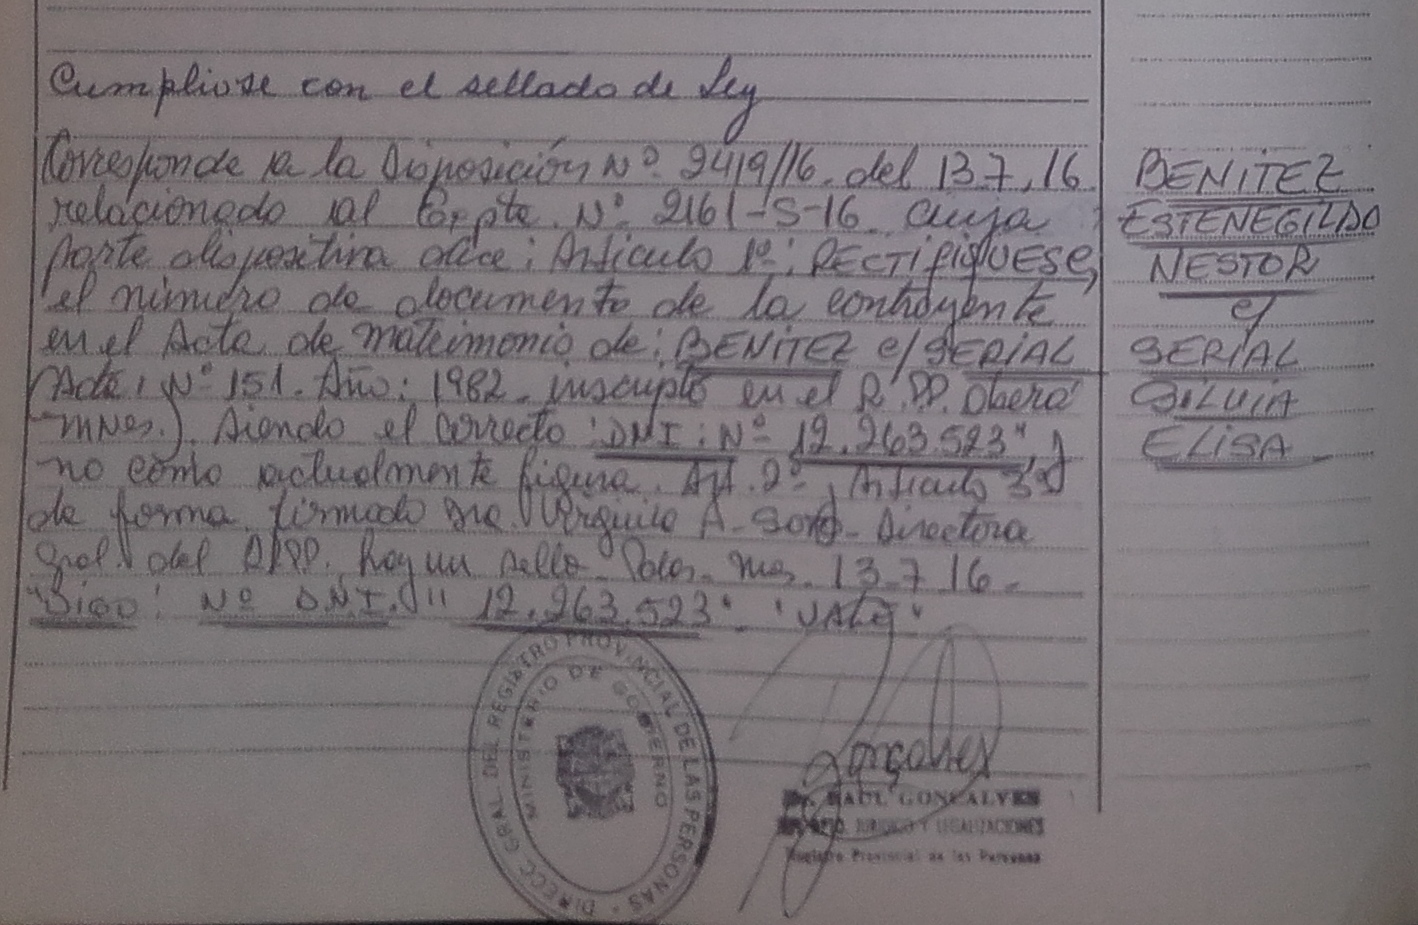 Cumpliose con el sellado de Ley
Corresponde a la Disposición Nº 2419/16. del 13.7.16.
relacionado al Expte. Nº 2161-S-16 cuya
parte dispositiva dice: Artículo 1º: RECTIFIQUESE,
el número de documento de la contrayente
en el Acta de matrimonio de: BENITEZ c/ SERIAL
Acta: Nº 151. Año: 1982. inscripto en el R.PP. Oberá
mnes.). siendo el correcto: "DNI: Nº 12.263.523", y
no como actualmente figura. Art. 2º, Artículo 3º
de forma. firmado Dra. A. Directora
Gral. del RPP. hay un sello. Pdas. Mnes. 13.7.16-
"Digo: Nº D.N.I. 12.263.523". "VALE".
BENITEZ
ESTENEGILDO
NESTOR
c/
SERIAL
SILVIA
ELISA
DIRECC. GRAL. DEL REGISTRO PROVINCIAL DE LAS PERSONAS
MINISTERIO DE GOBIERNO
Gonçalves
RAUL GONCALVES
JURIDICO Y LEGALIZACIONES
Registro Provincial de las Personas